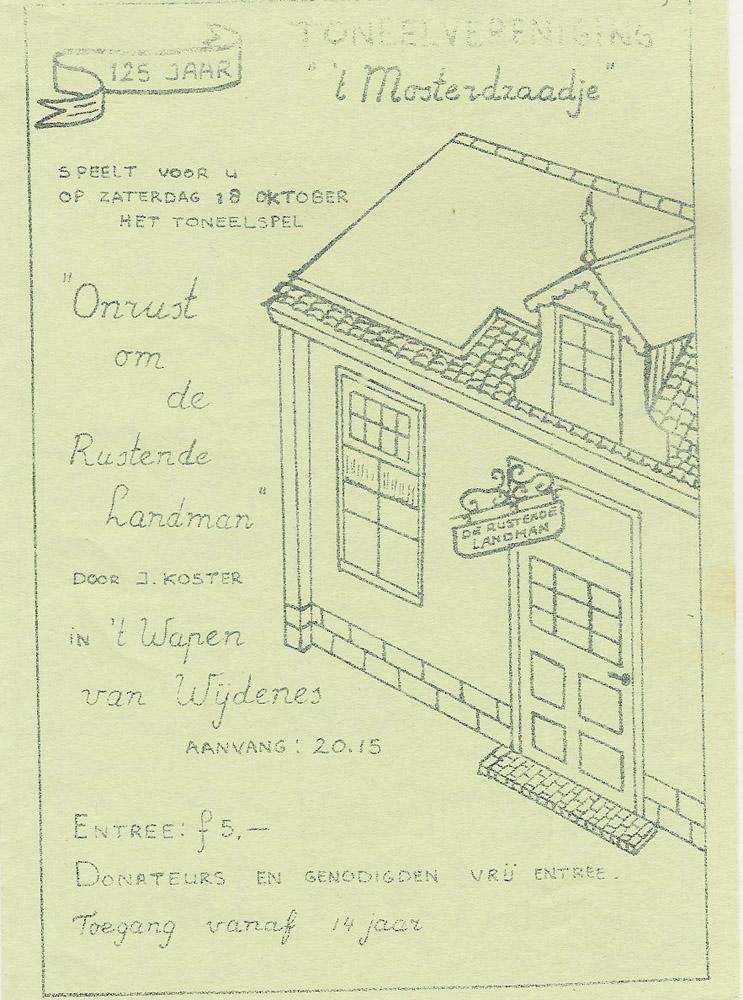 125 JAAR
TONEELVERENIGING
" 't Mosterdzaadje"
SPEELT VOOR U
OP ZATERDAG 18 OKTOBER
HET TONEELSPEL
"Onrust
om
de
Rustende
Landman"
DOOR J. KOSTER
IN 't Wapen
van Wijdenes
AANVANG: 20.15
DE RUSTENDE
LANDMAN
ENTREE: f 5,—
DONATEURS EN GENODIGDEN VRIJ ENTREE.
Toegang vanaf 14 jaar